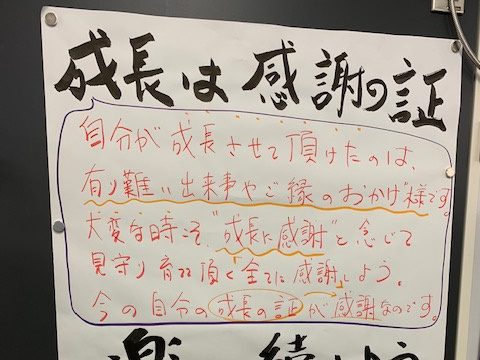 成長は感謝の証
自分が成長させて頂けたのは、
有り難い出来事やご縁のおかげ様です。
大変な時こそ、"成長に感謝"と念じて
見守り育て頂く「全てに感謝」しよう。
今の自分の成長の証が感謝なのです。